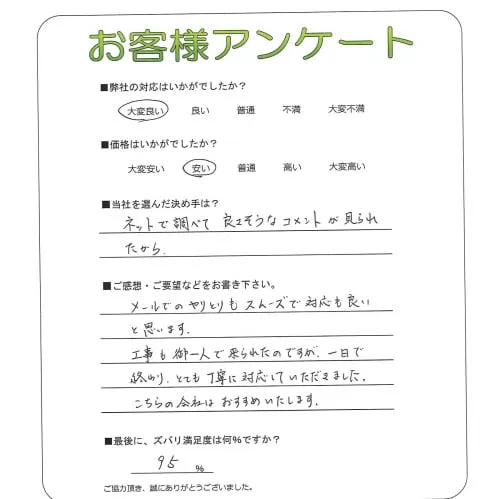 お客様アンケート
■弊社の対応はいかがでしたか？
大変良い 良い 普通 不満 大変不満
■価格はいかがでしたか？
大変安い 安い 普通 高い 大変高い
■当社を選んだ決め手は？
ネットで調べて 良さそうなコメントが見られ
たから．
■ご感想・ご要望などをお書き下さい。
メールでのやりとりもスムーズで対応も良い
と思います．
工事も御一人で来られたのですが、一日で
終わり、とても丁寧に対応していただきました。
こちらの会社はおすすめいたします。
■最後に、ズバリ満足度は何%ですか？
95 %
ご協力頂き、誠にありがとうございました。